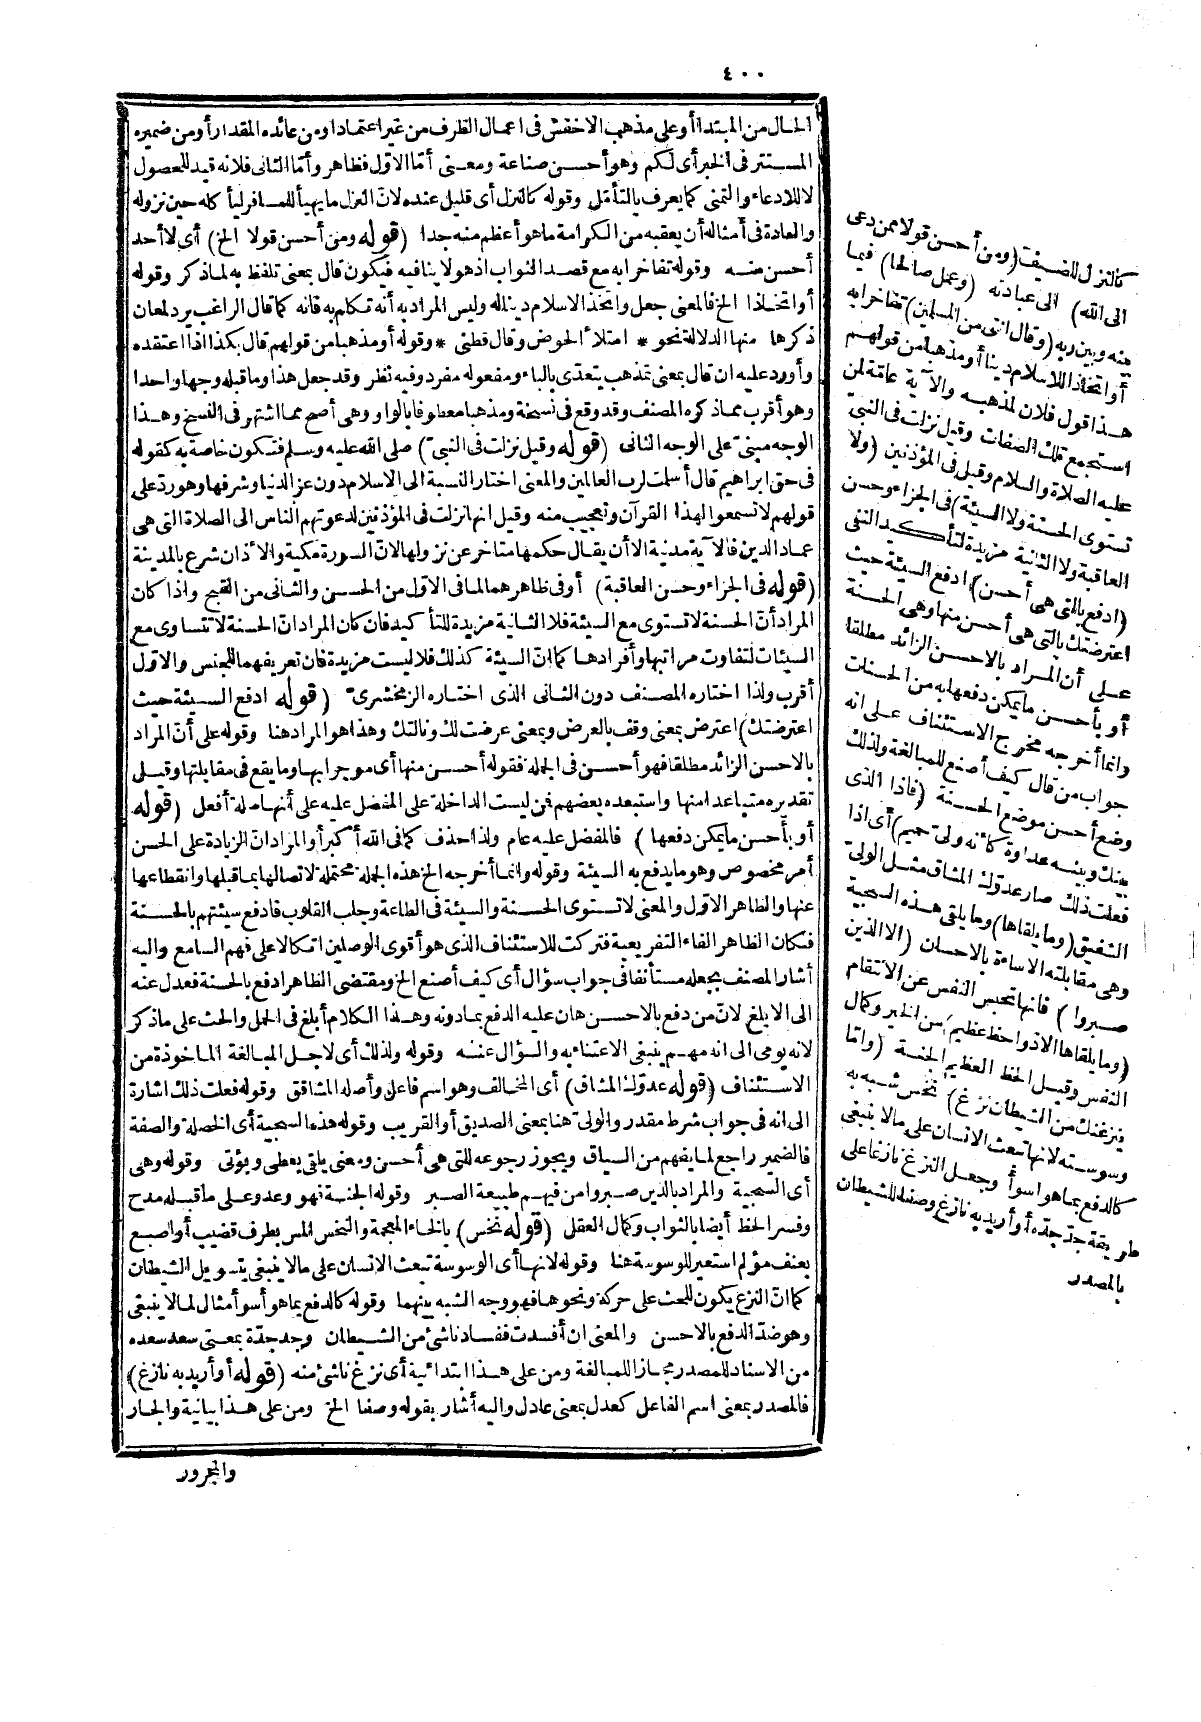 ٤٠٠
الحال من المبتدا أو على مذهب الاخفش فى اعمال الظرف من غير اعتماد او من عائده المقدار أو من ضميره
المستتر فى الخبر أى لكم وهو أحسن صناعة ومعنى أمّا الاوّل فظاهر وأمّا الثانى فلانه قيد للحصول
لا للادعاء والتمنى كما يعرف بالتأمّل وقوله كالنزل أى قليل عنده لانّ النزل ما يهيأ للمسافر ليأكله حين نزوله
والعادة فى أمثاله أن يعقبه من الكرامة ماهو أعظم منه جدا (قوله ومن أحسن قولا الخ) أى لا أحد
أحسن منه وقوله تفاخرا به مع قصد الثواب اذ هو لا ينافيه فيكون قال بمعنى تلفظ به لما ذكر وقوله
أو اتخاذا الخ فالمعنى جعل واتخذ الاسلام دينا له وليس المراد به أنه تكلم به فانه كما قال الراغب يرد لمعان
ذكرها منها الدلالة نحو * امتلأ الحوض وقال قطنى * وقوله أو مذهبا من قولهم قال بكذا اذا اعتقده
وأورد عليه ان قال بمعنى تمذهب يتعدى بالباء ومفعوله مفرد وفيه نظر وقد جعل هذا وما قبله وجها واحدا
وهو أقرب مما ذكره المصنف وقد وقع فى نسخة ومذهبا معطوفا بالواو وهى أصح مما اشتهر فى النسخ وهذا
الوجه مبنىّ على الوجه الثانى (قوله وقيل نزلت فى النبىّ) صلى الله عليه وسلم فتكون خاصة به كقوله
فى حق ابراهيم قال أسلمت لرب العالمين والمعنى اختار النسبة الى الاسلام دون عز الدنيا وشرفها وهو رد على
قولهم لا تسمعوا لهذا القرآن وتعجيب منه وقيل انها نزلت فى المؤذنين لدعوتهم الناس الى الصلاة التى هى
عماد الدين فالآية مدنية الا أن يقال حكمها متاخر عن نزولها لانّ السورة مكية والأذان شرع بالمدينة
(قوله فى الجزاء وحسن العاقبة) أو فى ظاهرهما لما فى الاول من الحسن والثانى من القبح واذا كان
المراد أنّ الحسنة لا تستوى مع السيئة فلا الثانية مزيدة للتأكيد فان كان المراد انّ الحسنة لا تتساوى مع
السيئات لتفاوت مراتبها وأفرادها كما انّ السيئة كذلك فلا ليست مزيدة فان تعريفهما للجنس والاول
أقرب ولذا اختاره المصنف دون الثانى الذى اختاره الزمخشرىّ (قوله ادفع السيئة حيث
اعترضتك) اعترض بمعنى وقف بالعرض وبمعنى عرضت لك ونالتك وهذا هو المراد هنا وقوله على أنّ المراد
بالاحسن الزائد مطلقا فهو أحسن فى الجملة فقوله أحسن منها أى موجرا بها وما يقع فى مقابلتها وقيل
تقديره متباعدا منها واستبعده بعضهم فمن ليست الداخلة على المفضل عليه على أنها صلة أفعل (قوله
أو بأحسن ما يمكن دفعها) فالمفضل عليه عام ولذا حذف كما فى الله أكبر أو المراد انّ الزيادة على الحسن
أمر مخصوص وهو ما يدفع به السيئة وقوله وانما أخرجه الخ هذه الجملة محتملة لاتصالها بما قبلها وانقطاعها
عنها والظاهر الاوّل والمعنى لا تستوى الحسنة والسيئة فى الطاعة وجلب القلوب فادفع سيئتهم بالحسنة
فكان الظاهر الفاء التفريعية فتركت للاستئناف الذى هو أقوى الوصلين اتكالا على فهم السامع واليه
أشار المصنف بجعله مستأنفا فى جواب سؤال أى كيف أصنع الخ ومقتضى الظاهر ادفع بالحسنة فعدل عنه
الى الابلغ لانّ من دفع بالاحسن هان عليه الدفع بما دونه وهذا الكلام أبلغ فى الحمل والحث على ما ذكر
لانه يومى الى انه مهم ينبغى الاعتناء به والسؤال عنه وقوله ولذلك أى لاجل المبالغة الماخوذة من
الاستئناف (قوله عدوّك المشاق) أى المخالف وهو اسم فاعل وأصله المشاقق وقوله فعلت ذلك اشارة
الى انه فى جواب شرط مقدر والولىّ هنا بمعنى الصديق أو القريب وقوله هذه السجية أى الخصلة والصفة
فالضمير راجع لما يفهم من السياق ويجوز رجوعه للتى هى أحسن ومعنى يلقى يعطى ويؤتى وقوله وهى
أى السجية والمراد بالذين صبروا من فيهم طبيعة الصبر وقوله الجنة فهو وعد وعلى ما قبله مدح
وفسر الحظ أيضا بالثواب وكمال العقل (قوله نخس) بالخاء المعجمة والنخس المس بطرف قضيب أو اصبع
بعنف مؤلم استعير للوسوسة هنا وقوله لانها أى الوسوسة تبعث الانسان على مالا ينبغى بتسويل الشيطان
كما انّ النزغ يكون للبعث على حركة ونحوها فهو وجه الشبه بينهما وقوله كالدفع بما هو أسوأ مثال لما لا ينبغى
وهو ضدّ الدفع بالاحسن والمعنى ان أفسدت ففساد ناشئ من الشيطان وجد جدّه بمعنى سعد سعده
من الاسناد للمصدر مجازا للمبالغة ومن على هذا ابتدائية أى نزغ ناشئ منه (قوله أو أريد به نازغ)
فالمصدر بمعنى اسم الفاعل كعدل بمعنى عادل واليه أشار بقوله وصفا الخ ومن على هذا بيانية والجار
والمجرور
كالنزل للضيف (ومن أحسن قولا ممن دعى
الى الله) الى عبادته (وعمل صالحا) فيما
بينه وبين ربه (وقال اننى من المسلمين) تفاخرا به
أو اتخاذا للاسلام دينا أو مذهبا من قولهم
هذا قول فلان لمذهبه والآية عامّة لمن
استجمع تلك الصفات وقيل نزلت فى النبىّ
عليه الصلاة والسلام وقيل فى المؤذنين (ولا
تستوى الحسنة ولا السيئة) فى الجزاء وحسن
العاقبة ولا الثانية مزيدة لتأكيد النفى
(ادفع بالتى هى أحسن) ادفع السيئة حيث
اعترضتك بالتى هى أحسن منها وهى الحسنة
على أن المراد بالاحسن الزائد مطلقا
أو بأحسن ما يمكن دفعها به من الحسنات
وانما أخرجه مخرج الاستئناف على انه
جواب من قال كيف أصنع للمبالغة ولذلك
وضع أحسن موضع الحسنة (فاذا الذى
بينك وبينه عداوة كأنه ولى حميم) أى اذا
فعلت ذلك صار عدوّك المشاق مثل الولىّ
الشفيق (وما يلقاها) وما يلقى هذه السجية
وهى مقابلته الاساءة بالاحسان (الا الذين
صبروا) فانها تحبس النفس عن الانتقام
(وما يلقاها الا ذو حظ عظيم) من الخير وكمال
النفس وقيل الحظ العظيم الجنة (وامّا
ينزغنك من الشيطان نزغ) نخس شبه به
وسوسته لانها تبعث الانسان على مالا ينبغى
كالدفع بما هو اسوأ وجعل النزغ نازغا على
طريقة جد جدّه أو أريد به نازغ وصفا للشيطان
بالمصدر